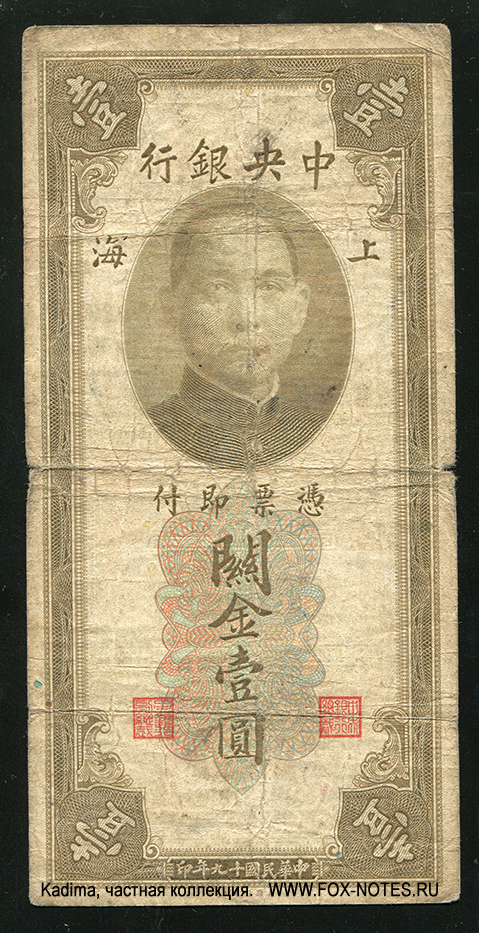 壹 壹
行銀央中
海 上
付即票憑
關
金
壹
圓
壹 壹
印年九十國民華中
Kadima, частная коллекция. WWW.FOX-NOTES.RU